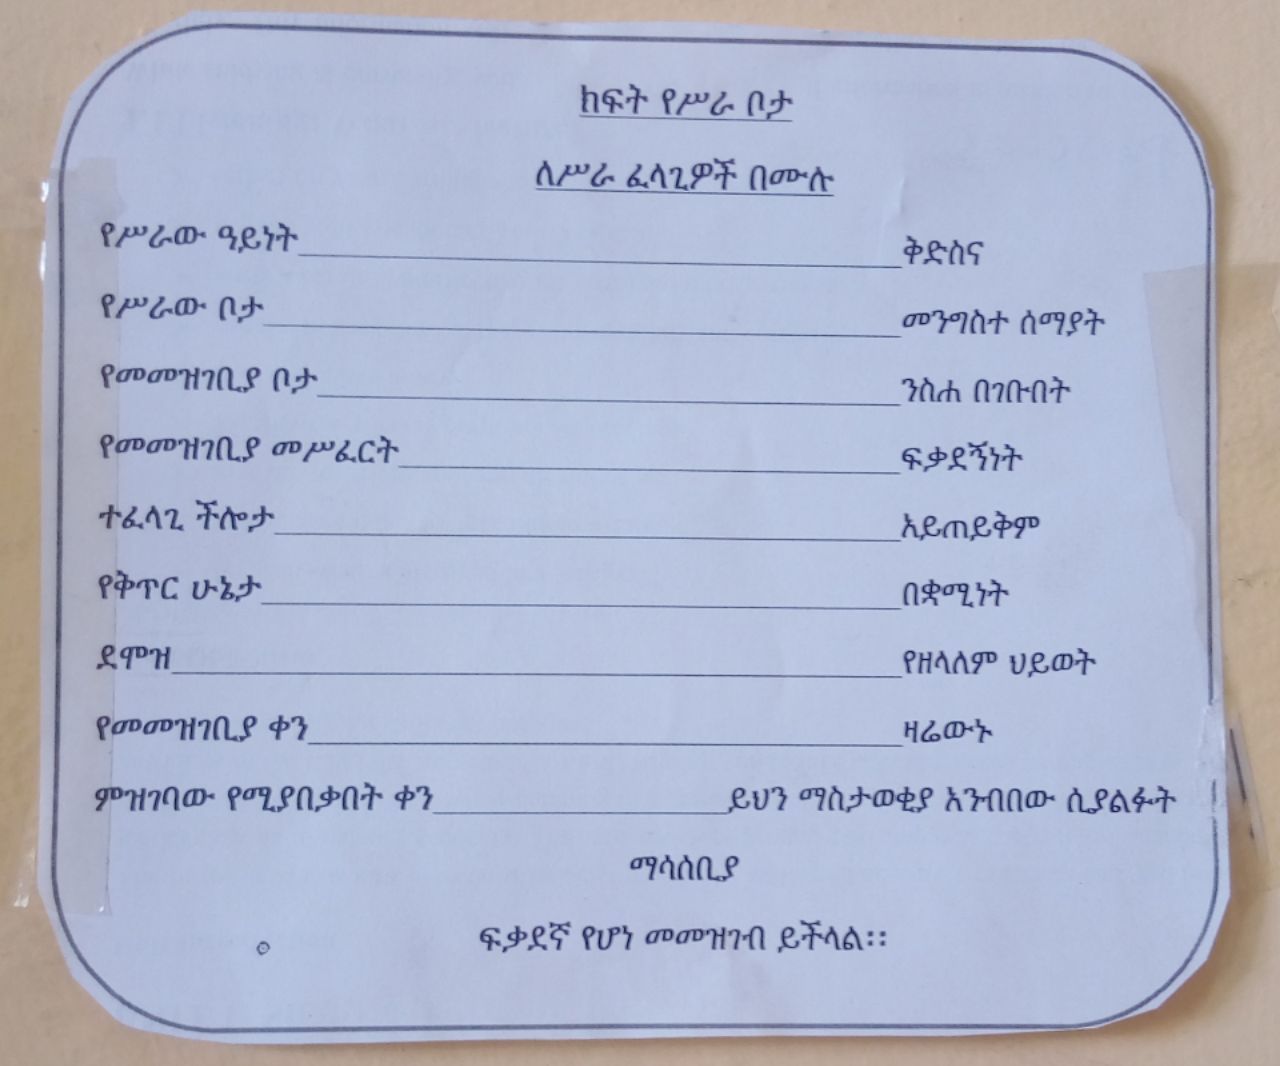 ክፍት የሥራ ቦታ
ለሥራ ፈላጊዎች በሙሉ
የሥራው ዓይነት____________________ቅድስና
የሥራው ቦታ____________________መንግስተ ሰማያት
የመመዝገቢያ ቦታ____________________ንስሐ በገቡበት
የመመዝገቢያ መሥፈርት____________________ፍቃደኝነት
ተፈላጊ ችሎታ____________________አይጠይቅም
የቅጥር ሁኔታ____________________በቋሚነት
ደሞዝ____________________የዘላለም ህይወት
የመመዝገቢያ ቀን____________________ዛሬውኑ
ምዝገባው የሚያበቃበት ቀን____________________ይህን ማስታወቂያ አንብበው ሲያልፉት
ማሳሰቢያ
ፍቃደኛ የሆነ መመዝገብ ይችላል፡፡